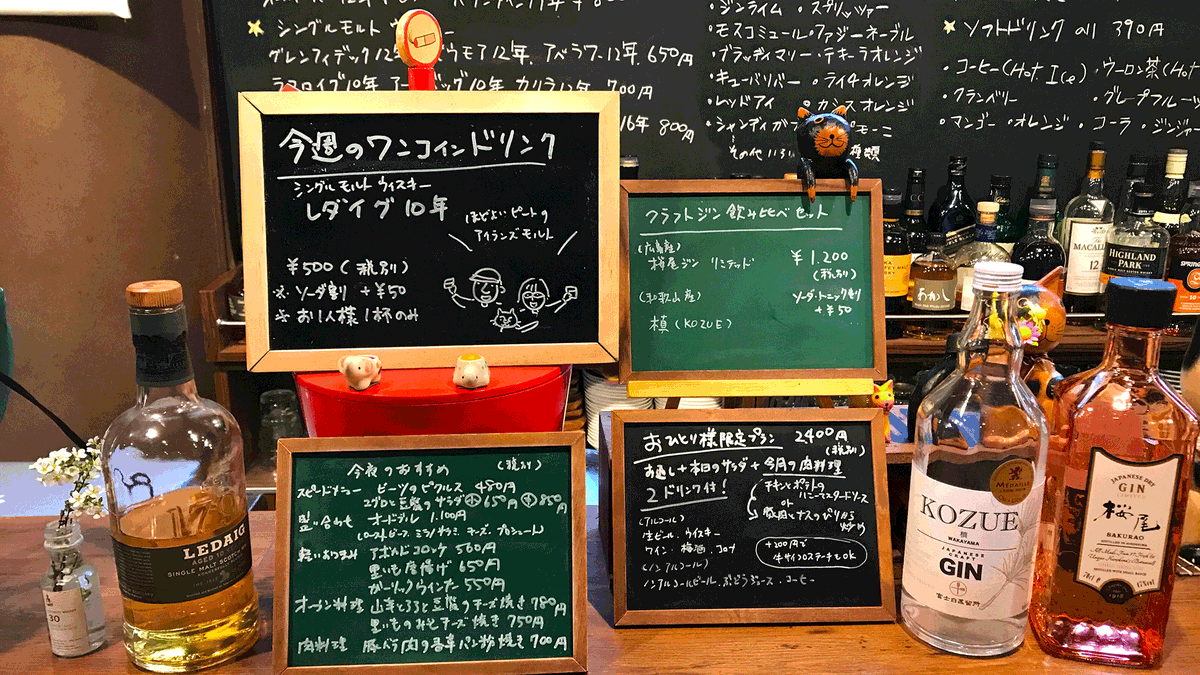 シングルモルト ウイスキー
グレンフィディック12年
ウモア12年. アベラワー12年. 650円
カリラ12年 700円
16年 800円
・ジンライム ・スプリッツァー
・モスコミュール・ファジーネーブル
・ブラッディマリー・テキーラオレンジ
・キューバリバー ・ライチオレンジ
・レッドアイ ・カシスオレンジ
・シャンディガ
種類
ソフトドリンク all 390円
・コーヒー(Hot Ice)・ウーロン茶(Hot
・クランベリー ・グレープフルーツ
・マンゴー ・オレンジ ・コーラ ・ジンジャ
今週のワンコインドリンク
シングルモルトウィスキー
レダイグ10年
ほどよいピートの
アイランズモルト
¥500(税別)
※ソーダ割 +¥50
※お1人様1杯のみ
クラフトジン飲み比べセット
(広島産)
桜尾ジン リミテッド
¥1,200
(税別)
(和歌山産)
槙(KOZUE)
ソーダ・トニック割
+¥50
今夜のおすすめ (税別)
スピードメニュー ビーツのピクルス 450円
マグロと豆腐のサラダ 650円 850円
盛り合わせ オードブル 1,100円
(ローストビーフ. ミラノサラミ. チーズ. プロシュート)
軽いおつまみ アボカドコロッケ 560円
里いも唐揚げ 550円
ガーリックウインナー 550円
オーブン料理 山芋とろろと豆腐のチーズ焼き 780円
里いものみそチーズ焼き 750円
肉料理 豚バラ肉の香草パン粉焼き 700円
おひとり様限定プラン 2400円
(税別)
お通し+本日のサラダ+今月の肉料理
2ドリンク付!
チキンとポテトの
ハニーマスタードソース
or
豚肉とナスのピリ辛
炒め
(アルコール)
生ビール. ウイスキー
ワイン. 梅酒. コロナ
(ノンアルコール)
ノンアルコールビール. ぶどうジュース. コーヒー
+300円で
牛サイコロステーキもOK
LEDAIG
AGED 10
SINGLE MALT SCOTCH
30
あかし
MACALL
12
HIGHLAND
PARK
SPRING
KOZUE
槙
WAKAYAMA
JAPANESE
CRAFT
GIN
富士白蒸留所
JAPANESE DRY
GIN
LIMITED
桜尾
SAKURAO
1918